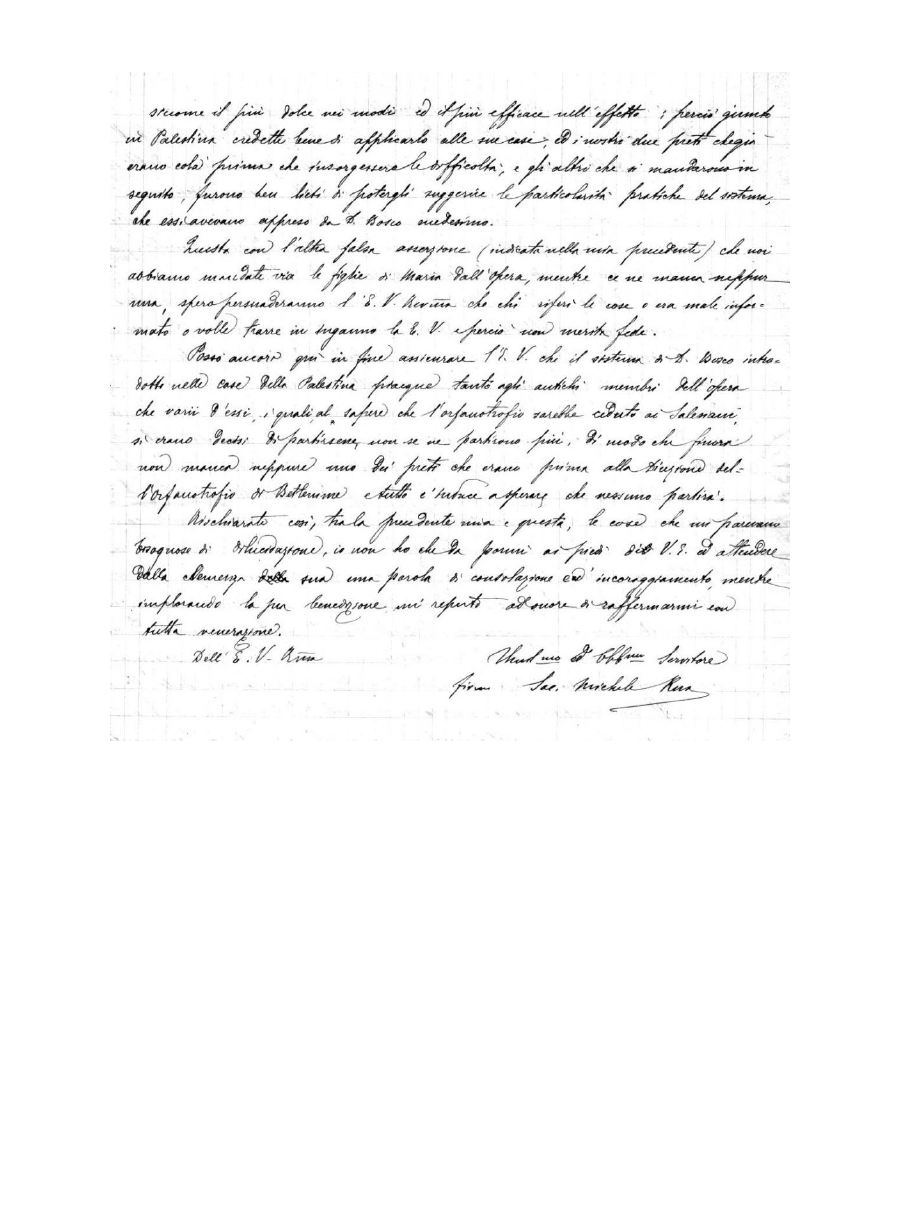 siccome il più dolce nei modi ed il più efficace nell'effetto; perciò giunto
in Palestina credette bene di applicarlo alle sue case, ed i nostri due preti che già
erano colà prima che insorgessero le difficoltà, e gli altri che si mandarono in
seguito, furono ben lieti di potergli suggerire le particolarità pratiche del sistema,
che essi avevano appreso da D. Bosco medesimo.
Questa con l'altra falsa asserzione (indicata nella mia precedente) che noi
abbiamo mandate via le figlie di Maria dall'Opera, mentre ce ne manca neppur
una, spero persuaderanno l'E. V. Rev.ma che chi riferì le cose o era male infor=
mato o volle trarre in inganno la E. V. e perciò non merita fede.
Posso ancora qui in fine assicurare l'E. V. che il sistema di D. Bosco intro=
dotto nelle case della Palestina piacque tanto agli antichi membri dell'opera
che varii d'essi, i quali, al sapere che l'orfanotrofio sarebbe ceduto ai Salesiani,
si erano decisi di partirsene, non se ne partirono più, di modo che finora
non manca neppure uno dei preti che erano prima alla direzione del=
l'Orfanotrofio di Betlemme e tutto c'induce a sperare che nessuno partirà.
Rischiarate così, tra la precedente mia e questa, le cose che mi parevano
bisognose di dilucidazione, io non ho che da pormi ai piedi di V. E. ed attendere
dalla clemenza sua una parola di consolazione e d'incoraggiamento, mentre
implorando la pia benedizione mi reputo ad onore di raffermarmi con
tutta venerazione.
Dell'E. V. R.ma Umil.mo ed Obb.mo Servitore
firm. Sac. Michele Rua